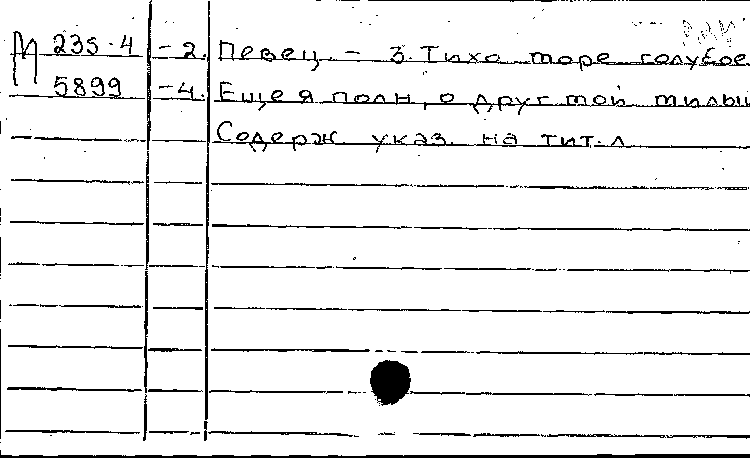 М 235-4 -2. Певец. - 3. Тихо море голубое
5899 -4. Еще я полн, о друг мой милый
Содерж. указ. на тит. л